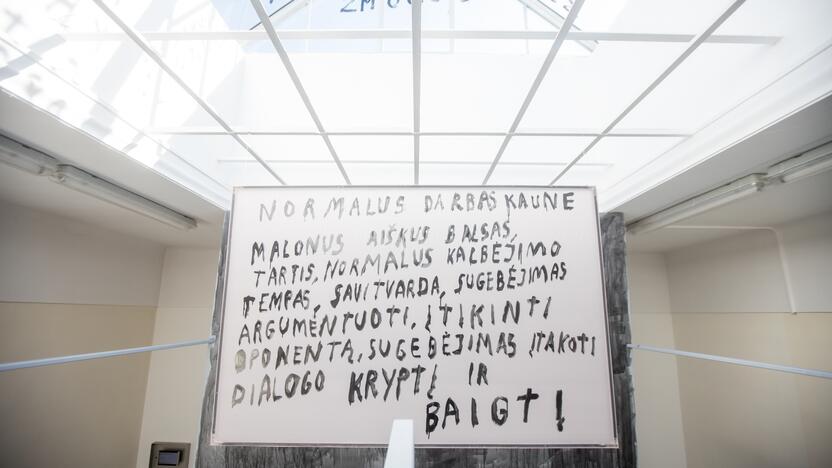 NORMALUS DARBAS KAUNE
MALONUS AIŠKUS BALSAS,
TARTIS, NORMALUS KALBĖJIMO
TEMPAS, SAVITVARDA, SUGEBĖJIMAS
ARGUMENTUOTI, ĮTIKINTI
OPONENTĄ, SUGEBĖJIMAS ĮTAKOTI
DIALOGO KRYPTĮ IR
BAIGTĮ